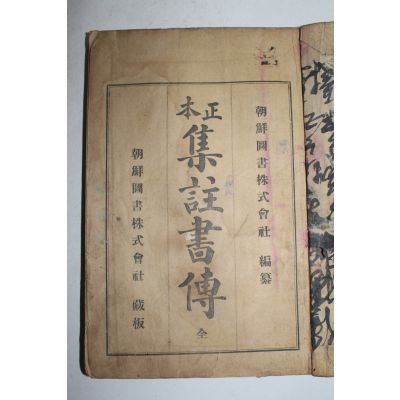 朝鮮圖書株式會社 編纂
正本
集註書傳
全
朝鮮圖書株式會社 藏板